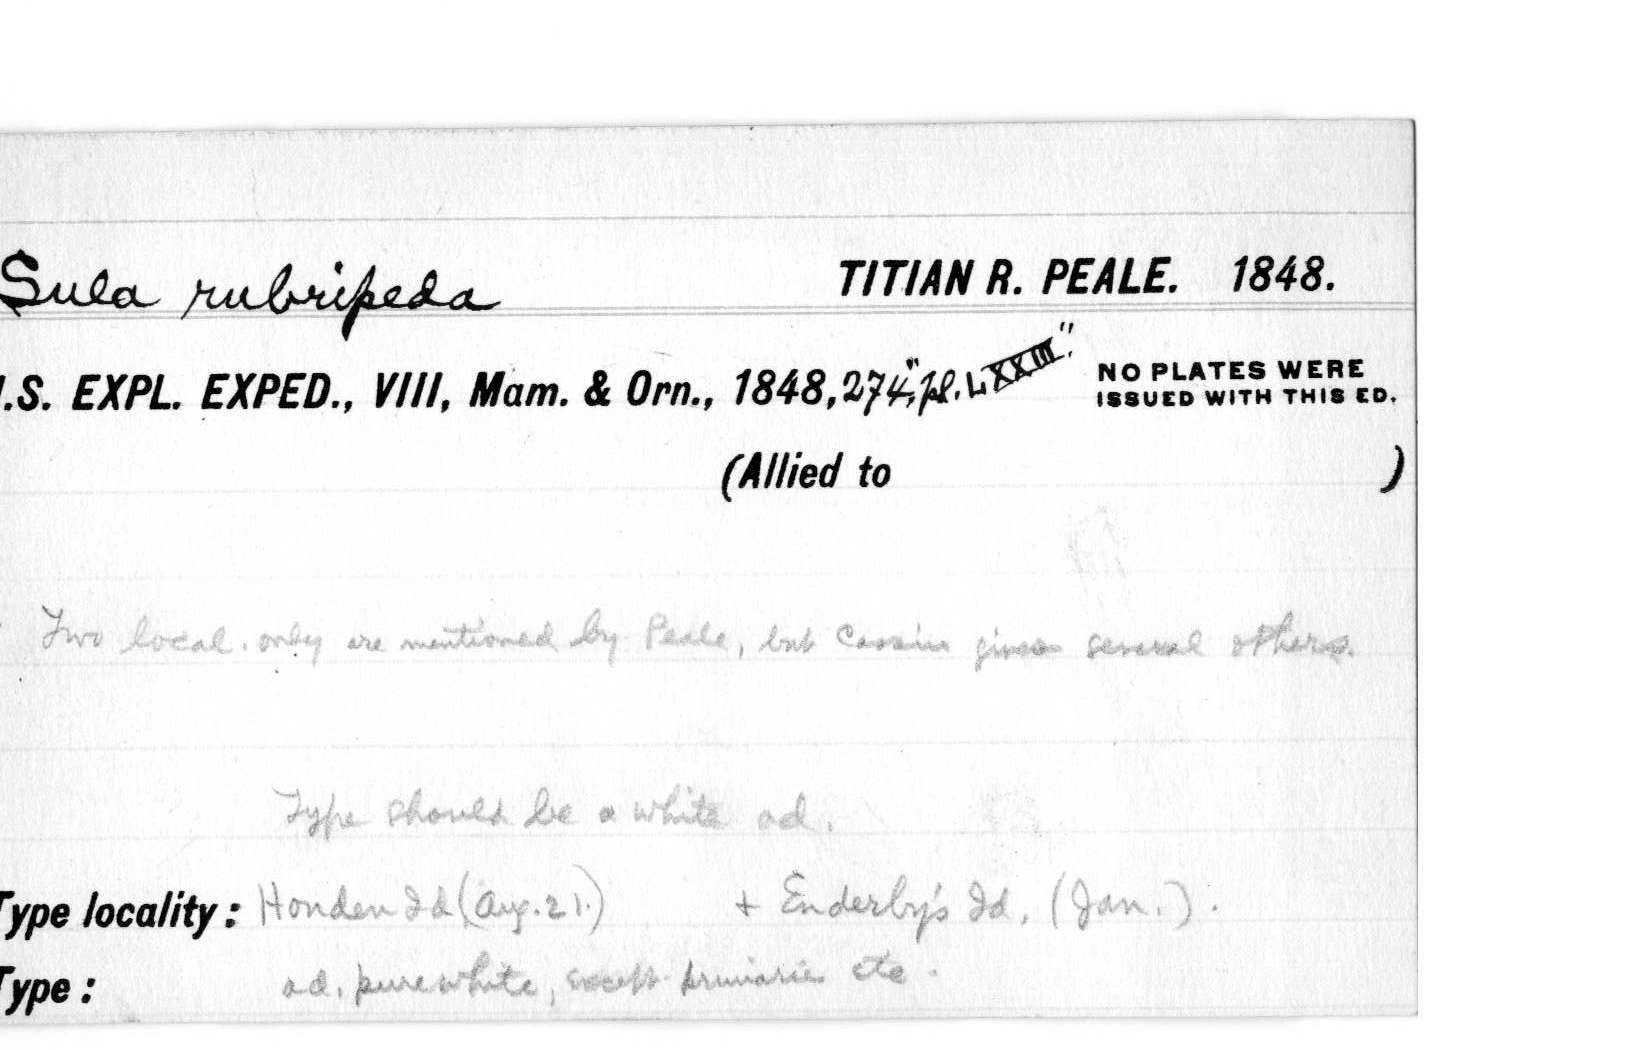 Sula rubripeda TITIAN R. PEALE. 1848.
.S. EXPL. EXPED., VIII, Mam. & Orn., 1848, 274, "pl. LXXXIII." NO PLATES WERE ISSUED WITH THIS ED.
(Allied to )
Two local. only are mentioned by Peale, but Cassin gives several others.
Type should be a white ad.
Type locality: Honden Id (Aug. 21.) + Enderby's Id. (Jan.).
Type: ad. pure white, except primaries etc.